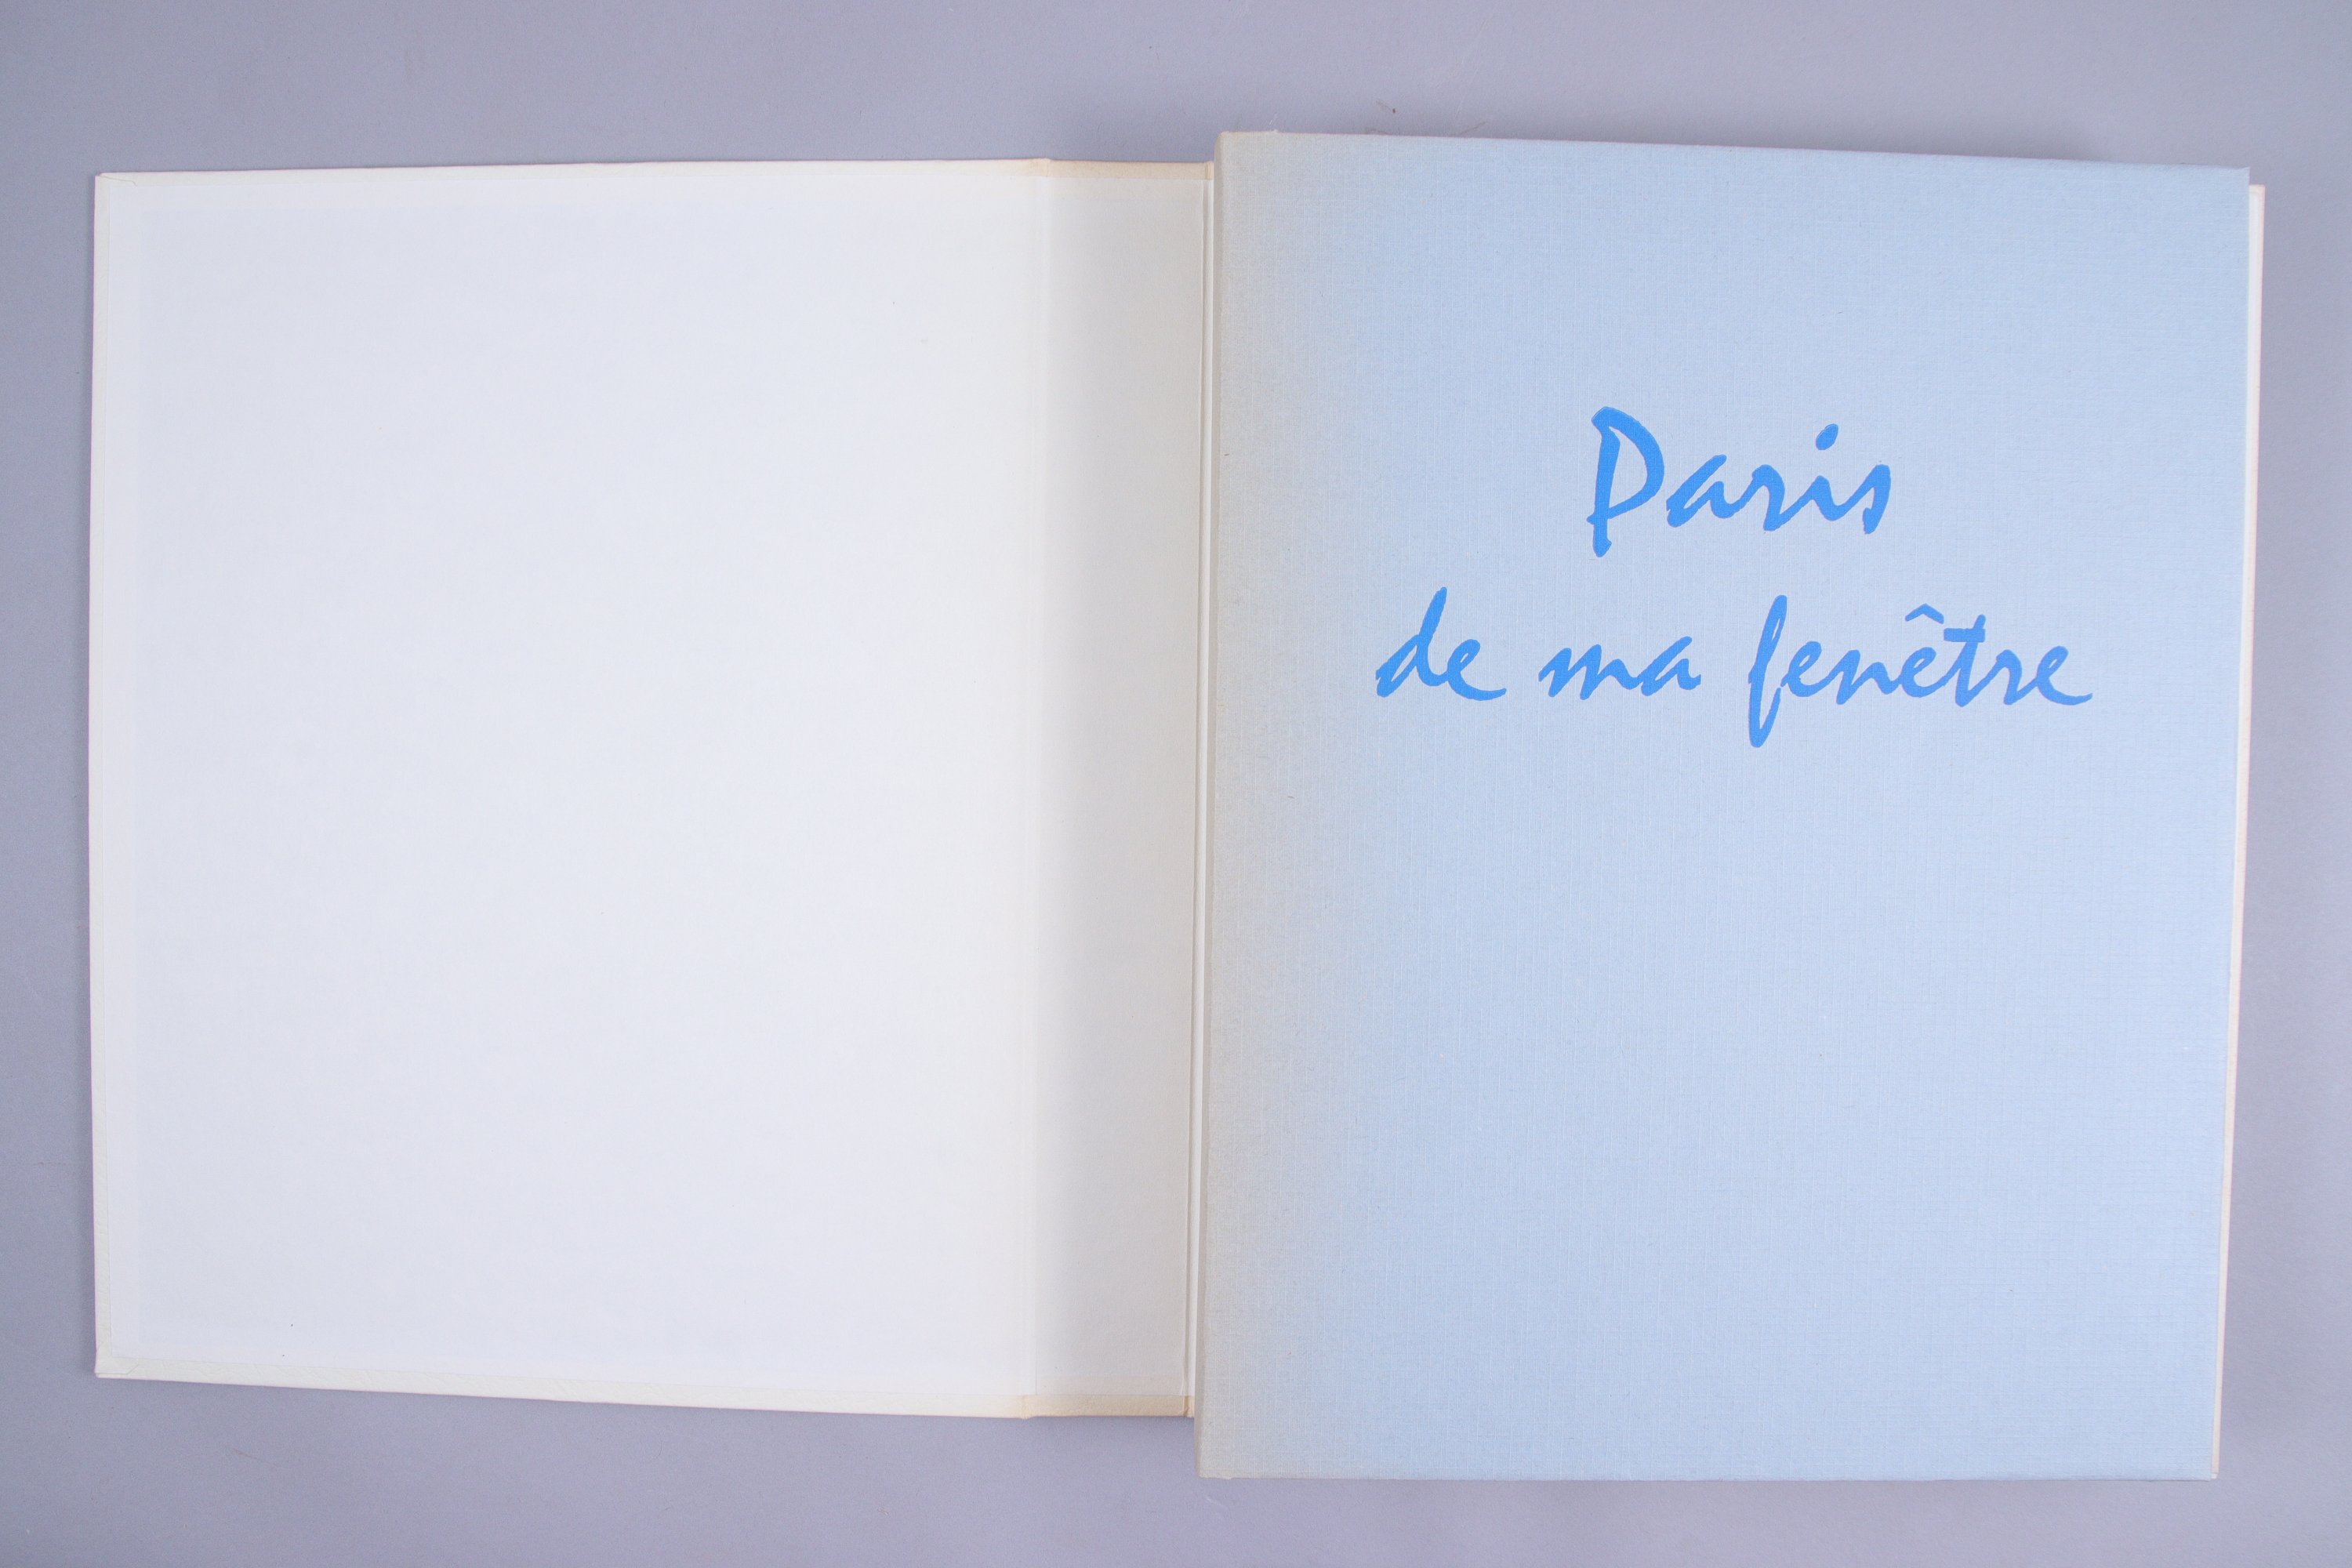 Paris
de ma fenêtre